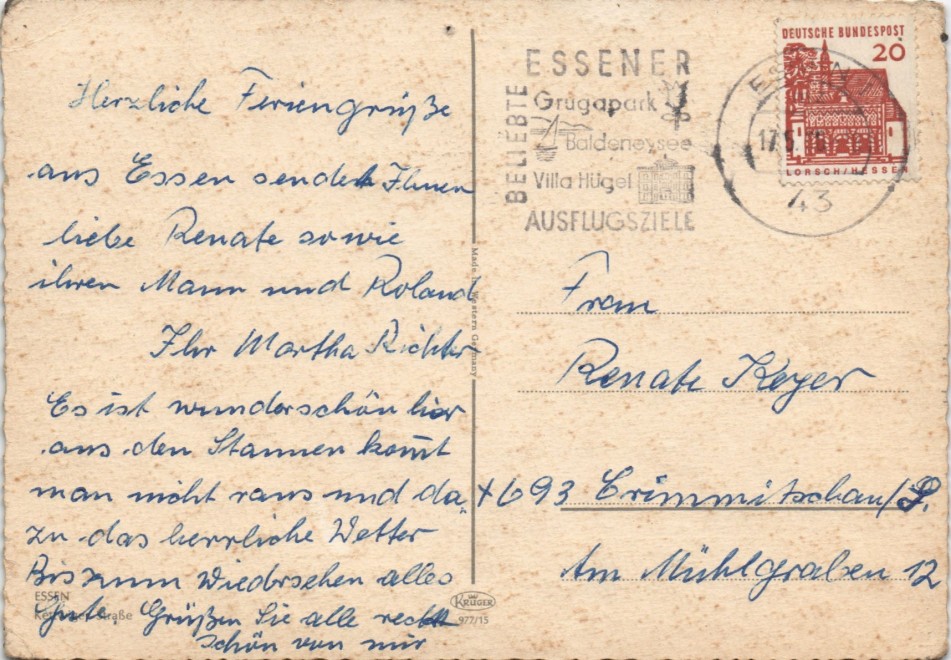 Herzliche Feriengrüße
aus Essen sendet Ihnen
liebe Renate sowie
ihren Mann und Roland
Ihr Martha Richter
Es ist wunderschön hier
aus den Staunen kom̅t
man nicht raus und da
zu das herrliche Wetter
Bis zum Wiedersehen alles
Gute. Grüßen Sie alle recht
schön von mir
ESSEN
Kettwiger Straße
Made in Western Germany
KRÜGER
977/15
BELIEBTE
ESSENER
Grugapark
Baldeneysee
Villa Hügel
AUSFLUGSZIELE
43
DEUTSCHE BUNDESPOST
20
LORSCH/HESSEN
Frau
Renate Keyer
x 693 Crimmitschau/S.
Am Mühlgraben 12